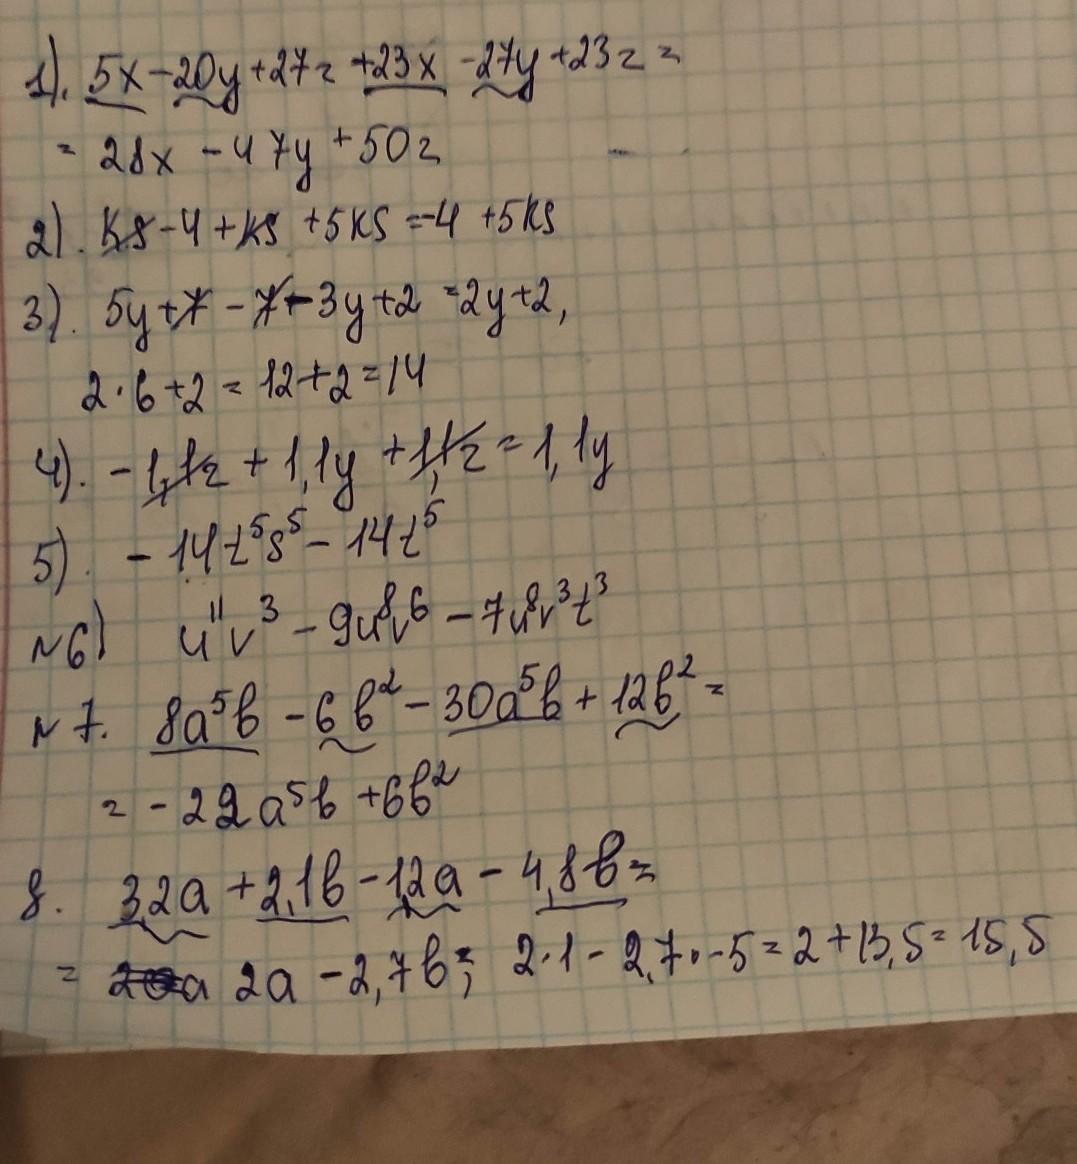 1). 5x - 20y + 27z + 23x - 27y + 23z =
= 28x - 47y + 50z
2). ks - 4 + ks + 5ks = -4 + 5ks
3). 5y + 7 - 7 - 3y + 2 = 2y + 2,
2·6 + 2 = 12 + 2 = 14
4). - 1,1z + 1,1y + 1,1z = 1,1y
5). - 14t⁵s⁵ - 14t⁵
N6) u¹¹v³ - 9u⁸v⁶ - 7u⁸v³t³
N7. 8a⁵b - 6b² - 30a⁵b + 12b² =
= - 22a⁵b + 6b²
8. 3,2a + 2,1b - 1,2a - 4,8b =
= 2a - 2,7b; 2·1 - 2,7·-5 = 2 + 13,5 = 15,5